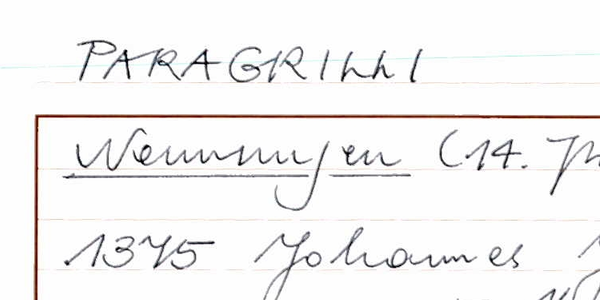 PARAGRILLI
Nenningen (14.
1375 Johannes